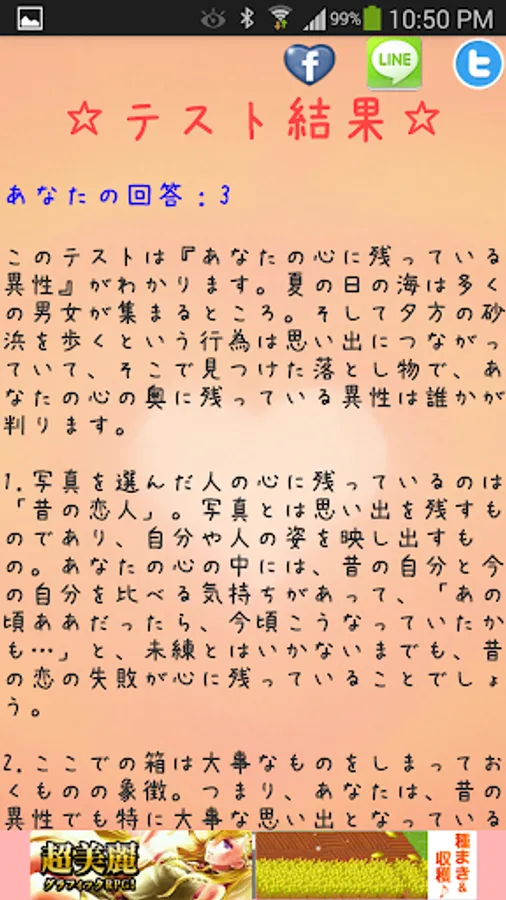 99% 10:50 PM
f LINE t
☆テスト結果☆
あなたの回答：3
このテストは『あなたの心に残っている
異性』がわかります。夏の日の海は多く
の男女が集まるところ。そして夕方の砂
浜を歩くという行為は思い出につながっ
ていて、そこで見つけた落とし物で、あ
なたの心の奥に残っている異性は誰かが
判ります。
1.写真を選んだ人の心に残っているのは
「昔の恋人」。写真とは思い出を残すも
のであり、自分や人の姿を映し出すも
の。あなたの心の中には、昔の自分と今
の自分を比べる気持ちがあって、「あの
頃ああだったら、今頃こうなっていたか
も…」と、未練とはいかないまでも、昔
の恋の失敗が心に残っていることでしょ
う。
2.ここでの箱は大事なものをしまってお
くものの象徴。つまり、あなたは、昔の
異性でも特に大事な思い出となっている
超美麗
グラフィックRPG!
種まき&
収穫♪